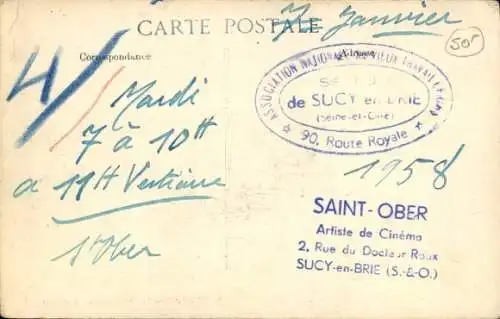 CARTE POSTALE
7 Janvier
50f
Correspondance
Adresse
ASSOCIATION NATIONALE VIEUX TRAVAILLEURS
de SUCY-en-BRIE
(Seine-et-Oise)
90, Route Royale
4
Mardi
7 à 10H
a 11H Vestiaire
St Ober
1958
SAINT-OBER
Artiste de Cinéma
2, Rue du Docteur Roux
SUCY-en-BRIE (S.-&-O.)